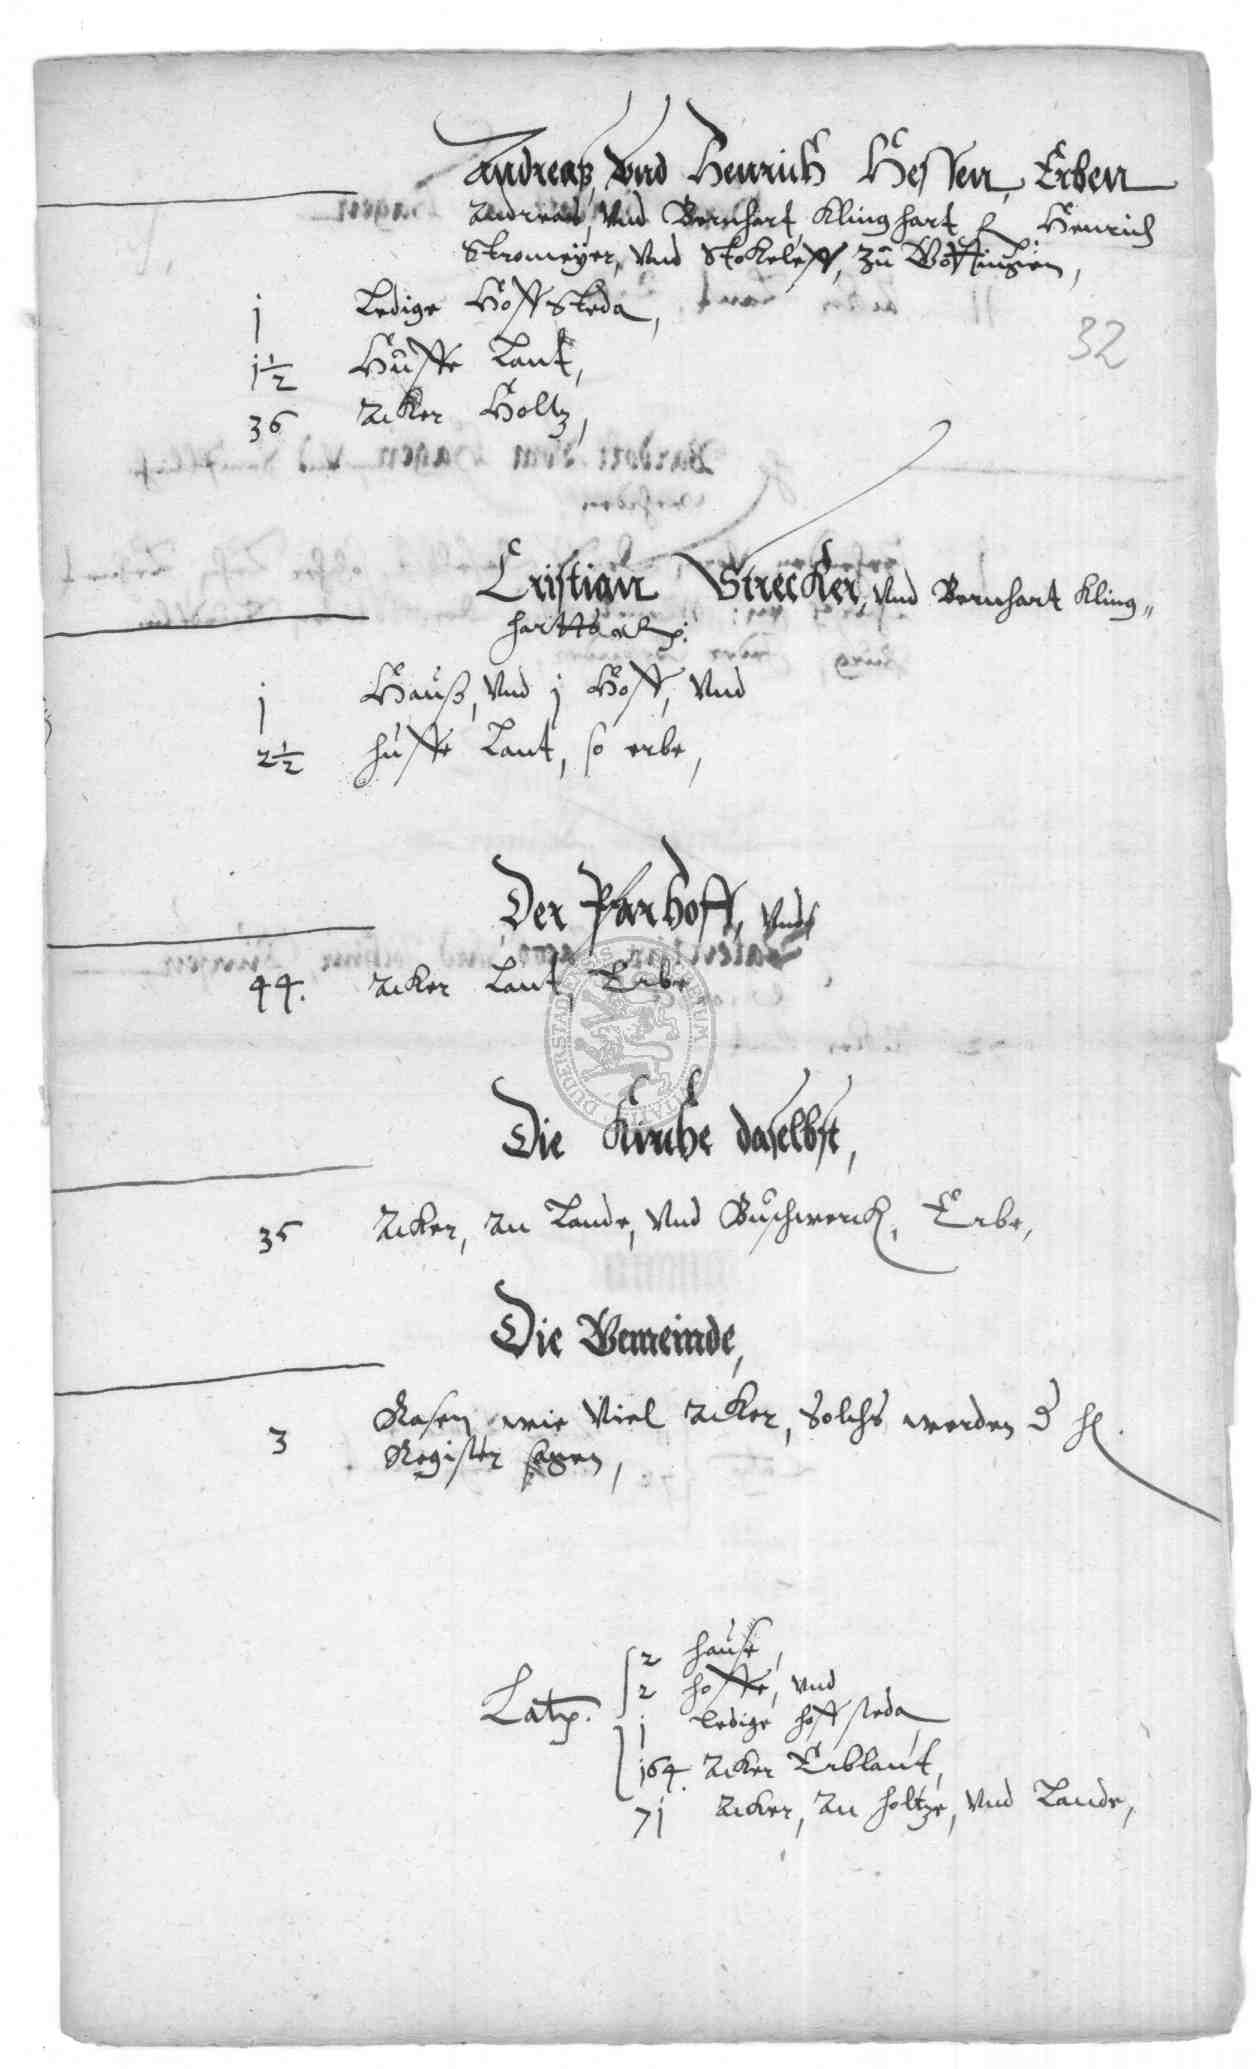 Andreas, vnd Henrich Hessen, Erben
Andreas, vnd Bernhart, Klinghart Henrich
Stromeÿer, vnd Stokeleff, zu Gottingen,
32
j Ledige Hoffsteda,
j½ Hůffe Lant,
36 Acker Holtz,
Cristian Strecker, vnd Bernhart Kling„
hart
j Hauß, vnd j Hoff, vnd
2½ hůffe Lant, so erbe,
Der Pfarhoff, vnd
44. Acker Lant, Erbe
Die Kirche daselbst,
35 Acker, an Lande, vnd Bůschwerck, Erbe,
Die Gemeinde,
3 Rasen wie viel Acker, Solchs werden d
Register sagen,
2 hause,
2 hoffe, vnd
Lat. j ledige hoffsteda,
164. Acker Erblant,
7j Acker, an holtze, vnd Lande,